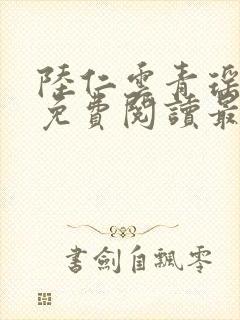 陸仁雲青瑶
免費閱讀最
書劍自飄零